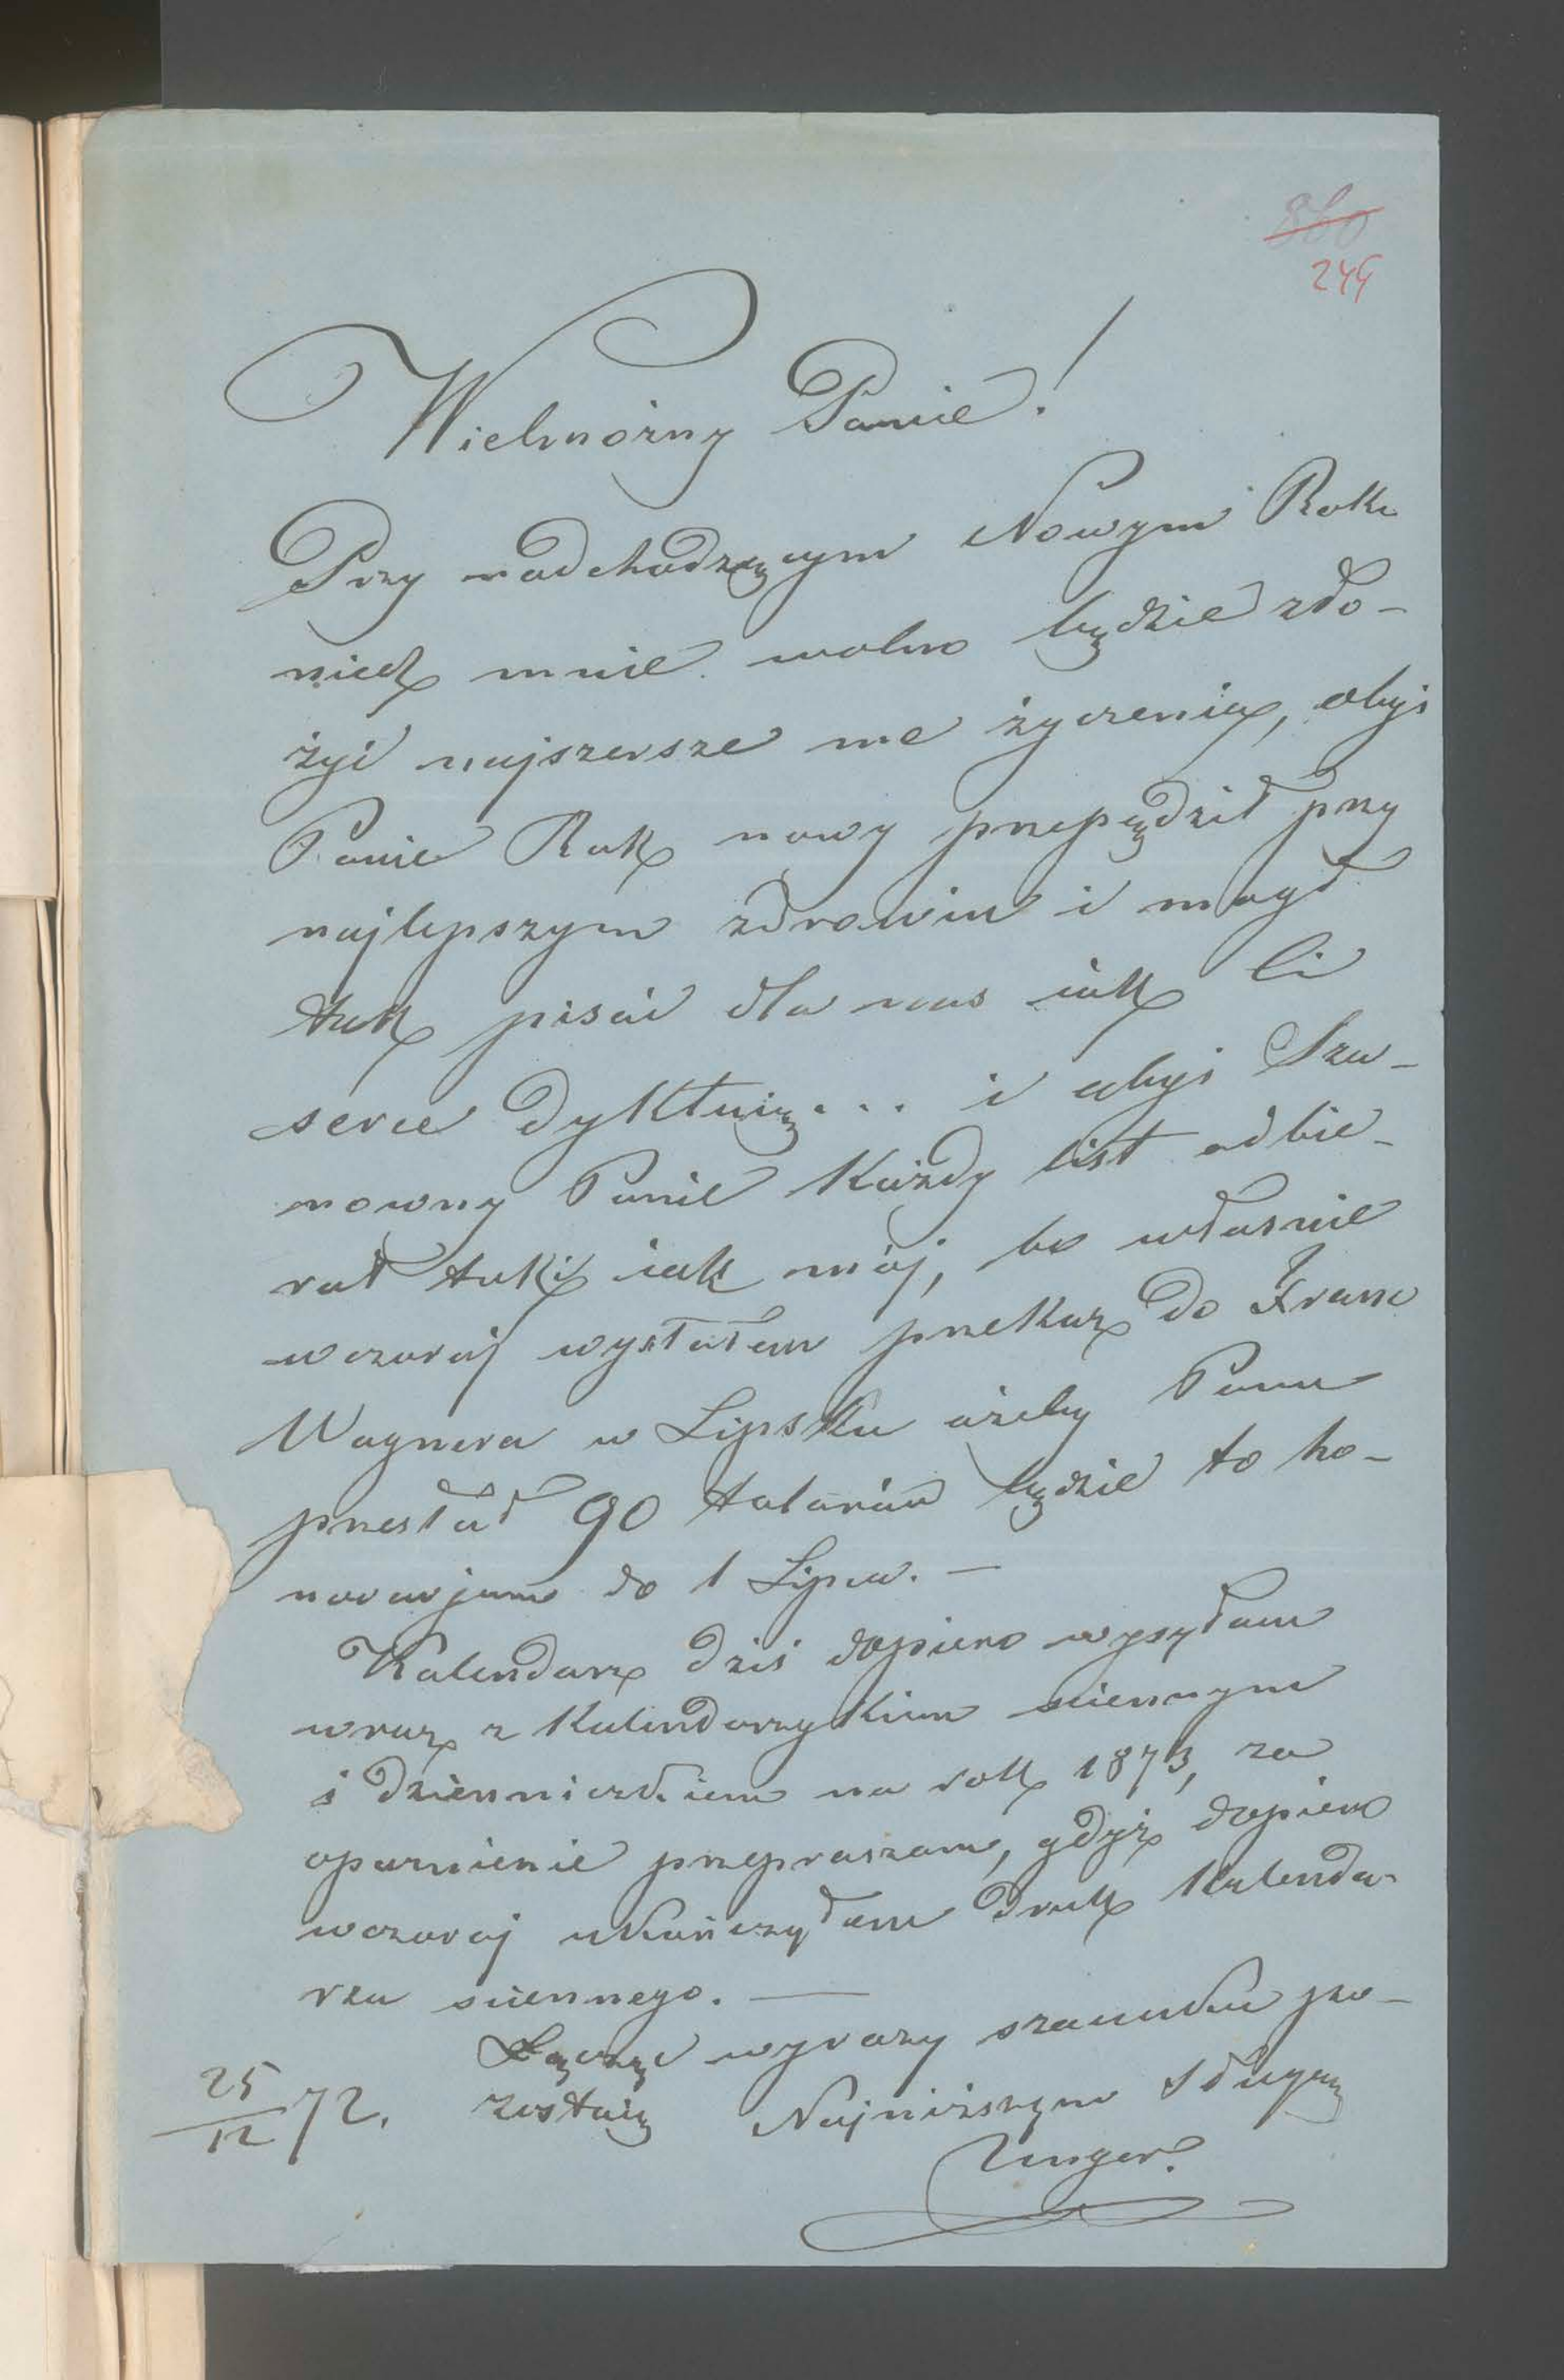 860
244
Wielmożny Panie!
Przy nadchodzącym Nowym Roku
niech mnie wolno będzie zło-
żyć najszersze me życzenia, abyś
Panie Rok nowy przepędził przy
najlepszym zdrowiu i mógł
tak pisać dla nas jak Ci
serce dyktuię... i abyś Sza-
nowny Panie Każdy list odbie-
rał taki jak mój, bo właśnie
wczoraj wysłałem przekaz do Franc
Wagnera w Lipsku ażeby Panu
przesłał 90 talarów będzie to ho-
norarjum do 1 Lipca. —
Kalendarz dziś dopiero wysyłam
wraz z Kalendarzykiem sciennym
i dzienniczkiem na rok 1873, za
opuznienie przepraszam, gdyż dopiero
wczoraj ukończyłem druk Kalenda-
rza sciennego. —
Łączę wyrazy szacunku po-
zostaię Najniższym Sługą
25/12 72.
Unger.